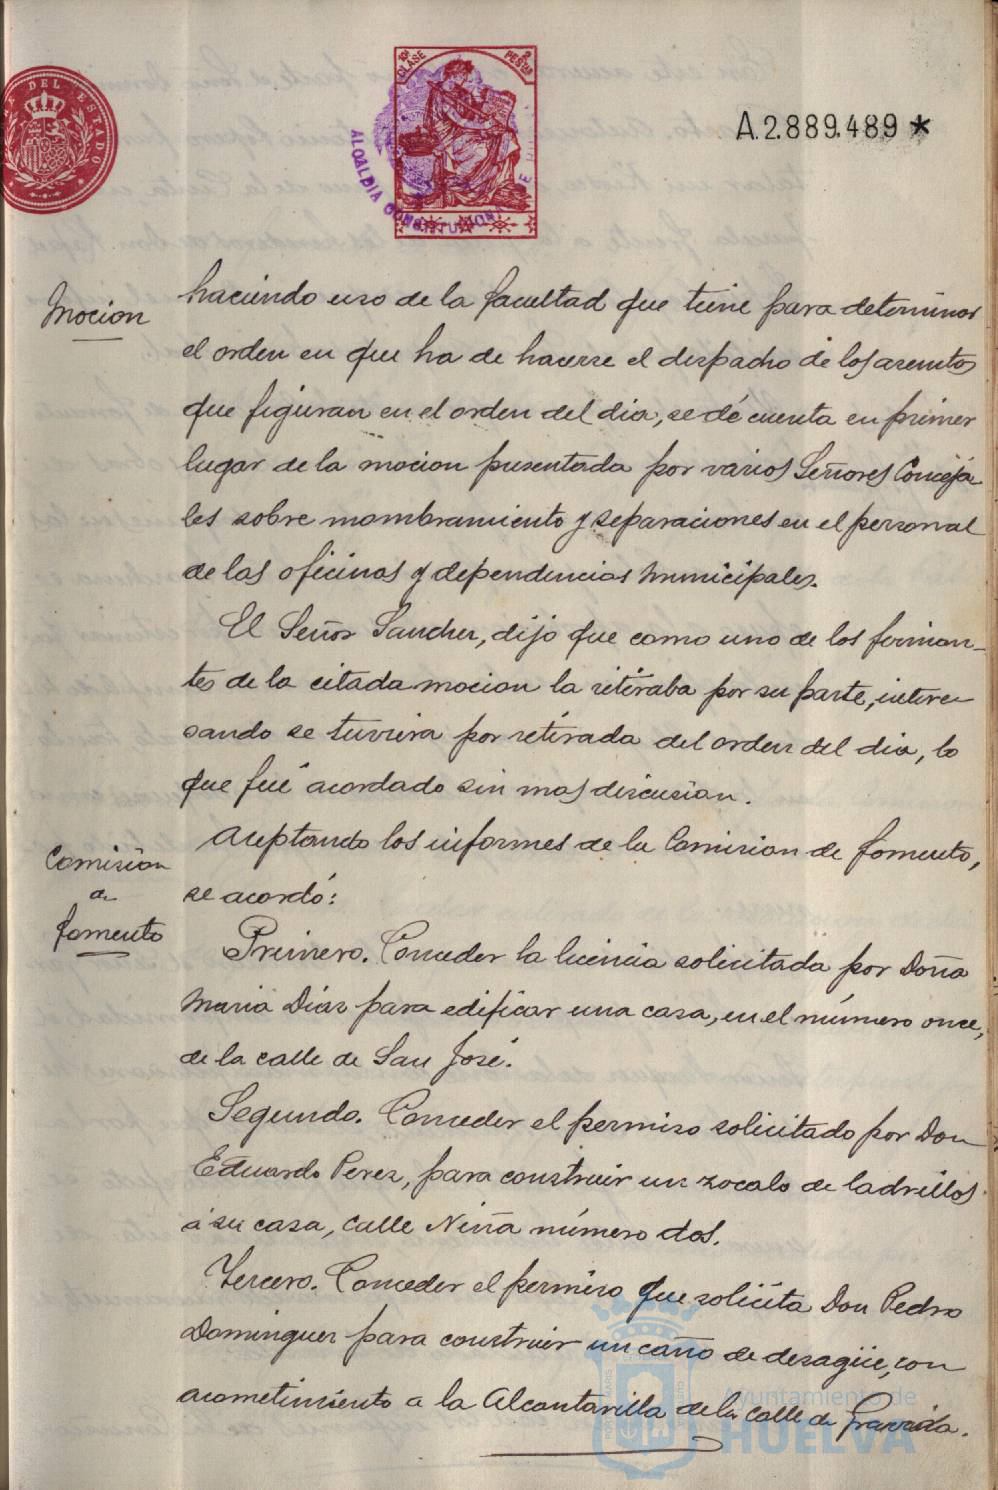 10ª CLASE
2 PESETAS
DEL ESTADO
ALCALDIA CONSTITUCIONAL DE
A.2.889.489 *
Mocion
haciendo uso de la facultad que tiene para determinar
el orden en que ha de hacerse el despacho de los asuntos
que figuran en el orden del dia, se dé cuenta en primer
lugar de la mocion presentada por varios Señores Conceja-
les sobre nombramiento y separaciones en el personal
de las oficinas y dependencias municipales.
El Señor Sanchez, dijo que como uno de los firman-
tes de la citada mocion la retiraba por su parte, intere-
sando se tuviera por retirada del orden del dia, lo
que fué acordado sin mas discusion.
Comision
de
fomento
Aceptando los informes de la Comision de fomento,
se acordó:
Primero. Conceder la licencia solicitada por Doña
Maria Diaz para edificar una casa, en el número once,
de la calle de San José.
Segundo. Conceder el permiso solicitado por Don
Eduardo Perez, para construir un zocalo de ladrillos
á su casa, calle Niña número dos.
Tercero. Conceder el permiso que solicita Don Pedro
Dominguez para construir un caño de desagüe, con
acometimiento a la Alcantarilla de la calle de
Ayuntamiento de
HUELVA